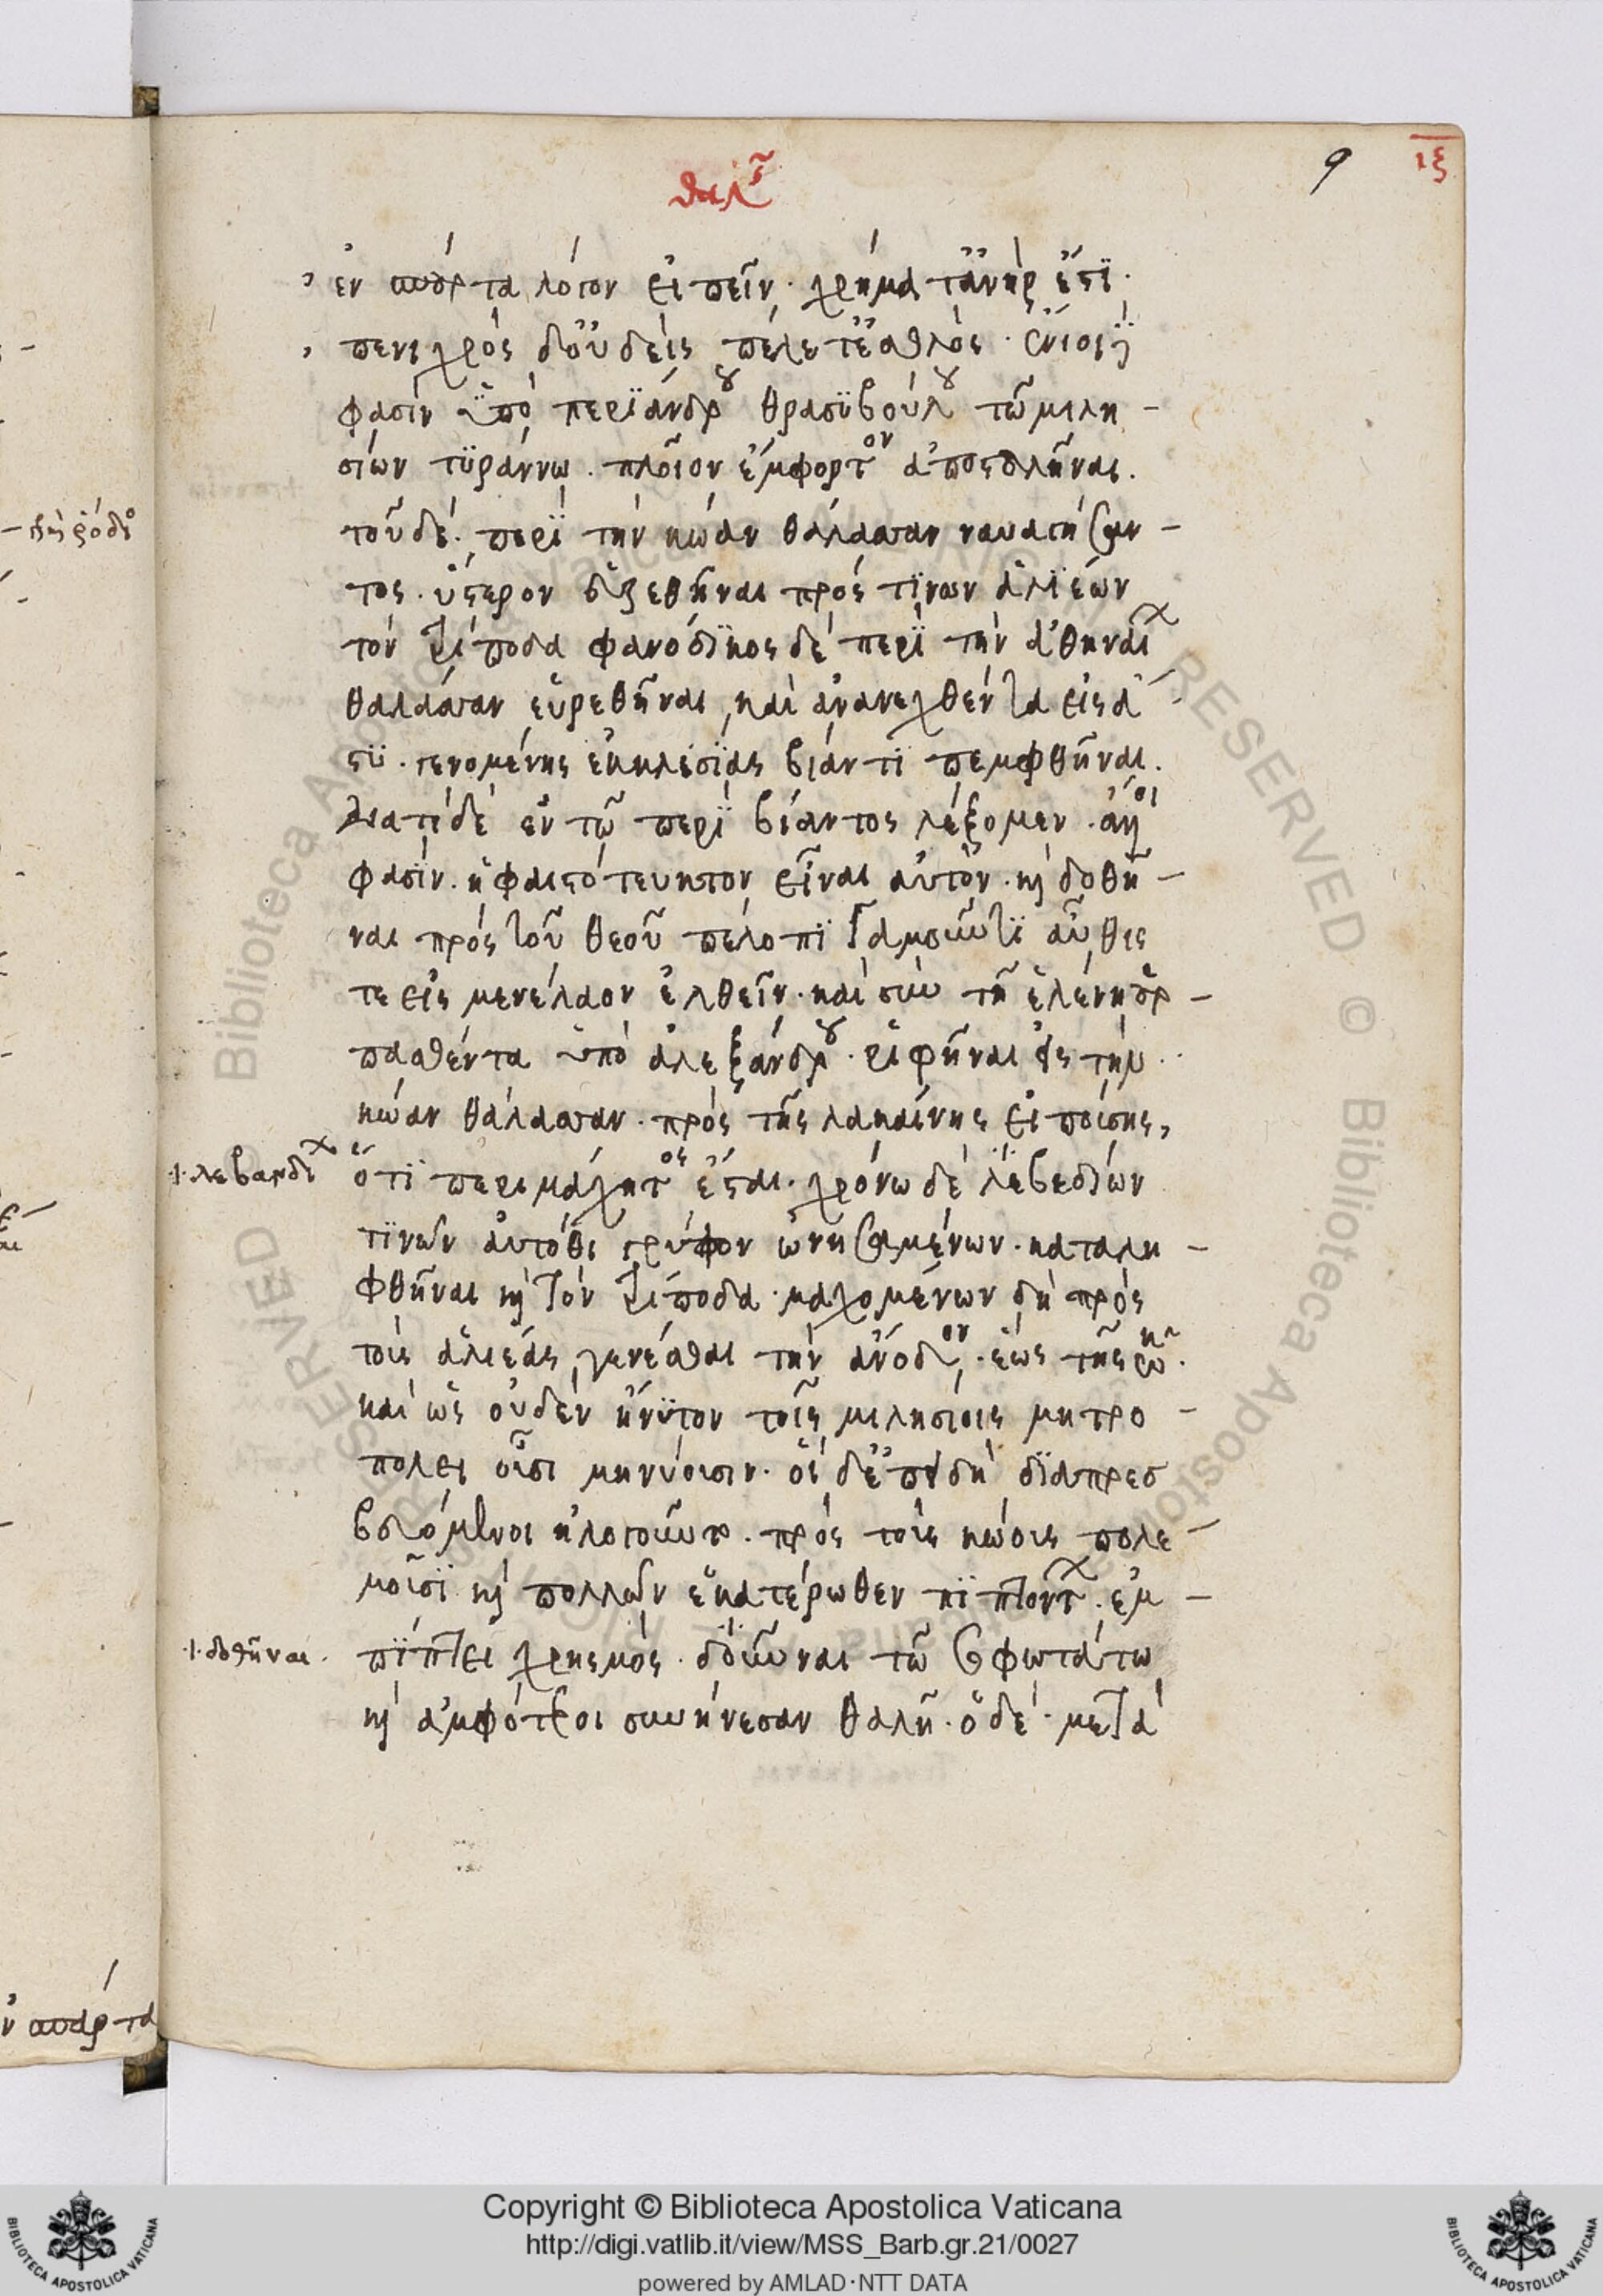 θαλῆς
9
ιξ
ἐν σπάρτα λόγον εἰπεῖν· χρήματ' ἀνὴρ ἐστί·
πενιχρὸς δ' οὐδεὶς πέλετ' ἐσθλὸς· ἔνιοι δὲ
φασὶν ὑπὸ περιάνδρου θρασυβούλου τῶ μιλη-
σίων τυράννω. πλοῖον ἔμφορτον ἀποσταλῆναι.
τοῦ δέ. περὶ τὴν κώαν θάλασσαν ναυαγήσαν-
τος. ὕστερον εὑρεθῆναι πρός τινων ἁλιέων
τὸν τρίποδα φανόδικος δὲ περὶ τὴν ἀθηναίων
θάλασσαν εὑρεθῆναι, καὶ ἀνανεχθέντα εἰς ἄ-
στυ. γενομένης ἐκκλησίας βίαντι πεμφθῆναι.
διατί δὲ ἐν τῶ περὶ βίαντος λέξομεν. ἄλλοι
φασίν. ἡφαιστότευκτον εἶναι αὐτὸν. καὶ δοθῆ-
ναι πρὸς τοῦ θεοῦ πέλοπι γαμοῦντι αὖθις
τε εἰς μενέλαον ἐλθεῖν. καὶ σὺν τῆ ἑλένη ἁρ-
πασθέντα ὑπὸ ἀλεξάνδρου. ῥιφῆναι ἐς τὴν
κώαν θάλασσαν. πρὸς τῆς λακαίνης εἰποίσης,
·/·λεβανδίων
ὅτι περιμάχητος ἔσται. χρόνω δὲ λεβεδίων
τινῶν αὐτόθι γρύφον ὠνησαμένων. καταλη-
φθῆναι καὶ τὸν τρίποδα. μαχομένων δὴ πρὸς
τοὺς ἁλιέας, γενέσθαι τὴν ἄνοδον. ἕως τῆς κῶ.
καὶ ὡς οὐδὲν ἤνυτον τοῖς μιλησίοις μητρο-
πολει οὖσι μηνύουσιν. οἱ δ' ἐπειδὴ διαπρεσ
βευόμενοι ἠλογοῦντο. πρὸς τοὺς κώους πολε-
μοῦσι καὶ πολλῶν ἑκατέρωθεν πιπτόντων. ἐμ-
·/·δοθῆναι.
πίπτει χρησμός. δοῦναι τῶ σοφωτάτω
καὶ ἀμφότεροι συνήνεσαν θαλῆ. ὁ δὲ. μετὰ
ν σπάρτα
Copyright © Biblioteca Apostolica Vaticana
http://digi.vatlib.it/view/MSS_Barb.gr.21/0027
powered by AMLAD·NTT DATA